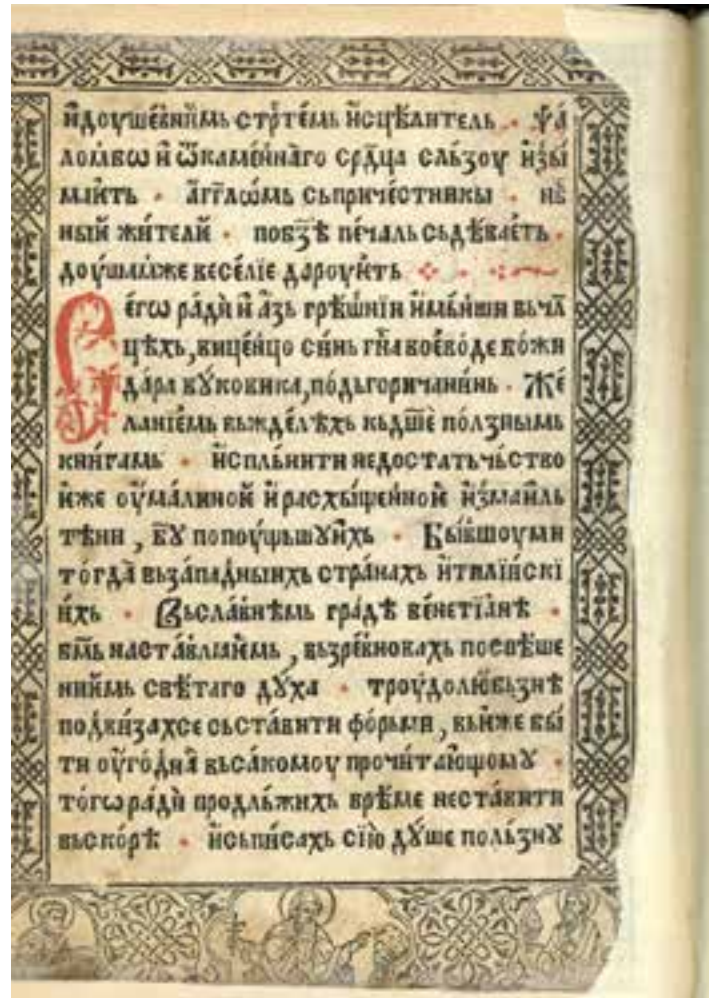 и҆доуше́вни́мь стр҇те́мь и҆сцѣли́тель • ѱа
ло́мѡ и҆ ѡ҆камени́наго ср҇дца сль́зоу и҆зы
мает • а҆гг҃лѡ́мь сьприче́стникы • нб
ный жи́тели • побзѣ пе́чаль сьдѣ́вает •
до́ушамже весе́лїе дароует
Сегѡ ра́ди и҆ а҆зь грѣ́шнїи и҆ мьнши вьчл
цѣ́хь, вице́нцо си́нь гн҃а вое́воде бо́жи
да́ра вꙋковика, по́дьгоричани́нь • Же
ланїе́мь вьжделѣ́хь кьдш҃е по́лзнымь
кни́гамь • и҆спль́нити недостатьчьство
и҆же оу҆ма́линой и҆ расхы́щенной и҆змаиль
тѣ́ни, бꙋ попоу́щьшꙋи҆хь • Бы́вшоу ми
тогда̀ вьза́падныихь стра́нахь и҆тилїискї
и҆хь • Вьсла́внѣмь гра́дѣ вене́тїанѣ •
бм҃ь наста́влꙗемь, вьзре́вновахь поспѣше
ни́имь свѣ́таго дꙋ́ха • троу́долю́бьзнѣ
по́двизахсе сьста́вити фо́рьми, вьнꙗже бы́
ти оу҆го́дна вьса́комоу прочита́ющомꙋ •
то́гѡ ра́ди продльжихь врѣ́ме неста́вити
вьско́рѣ • и҆сьпи́сахь сїю дꙋ́ше поль́знꙋ